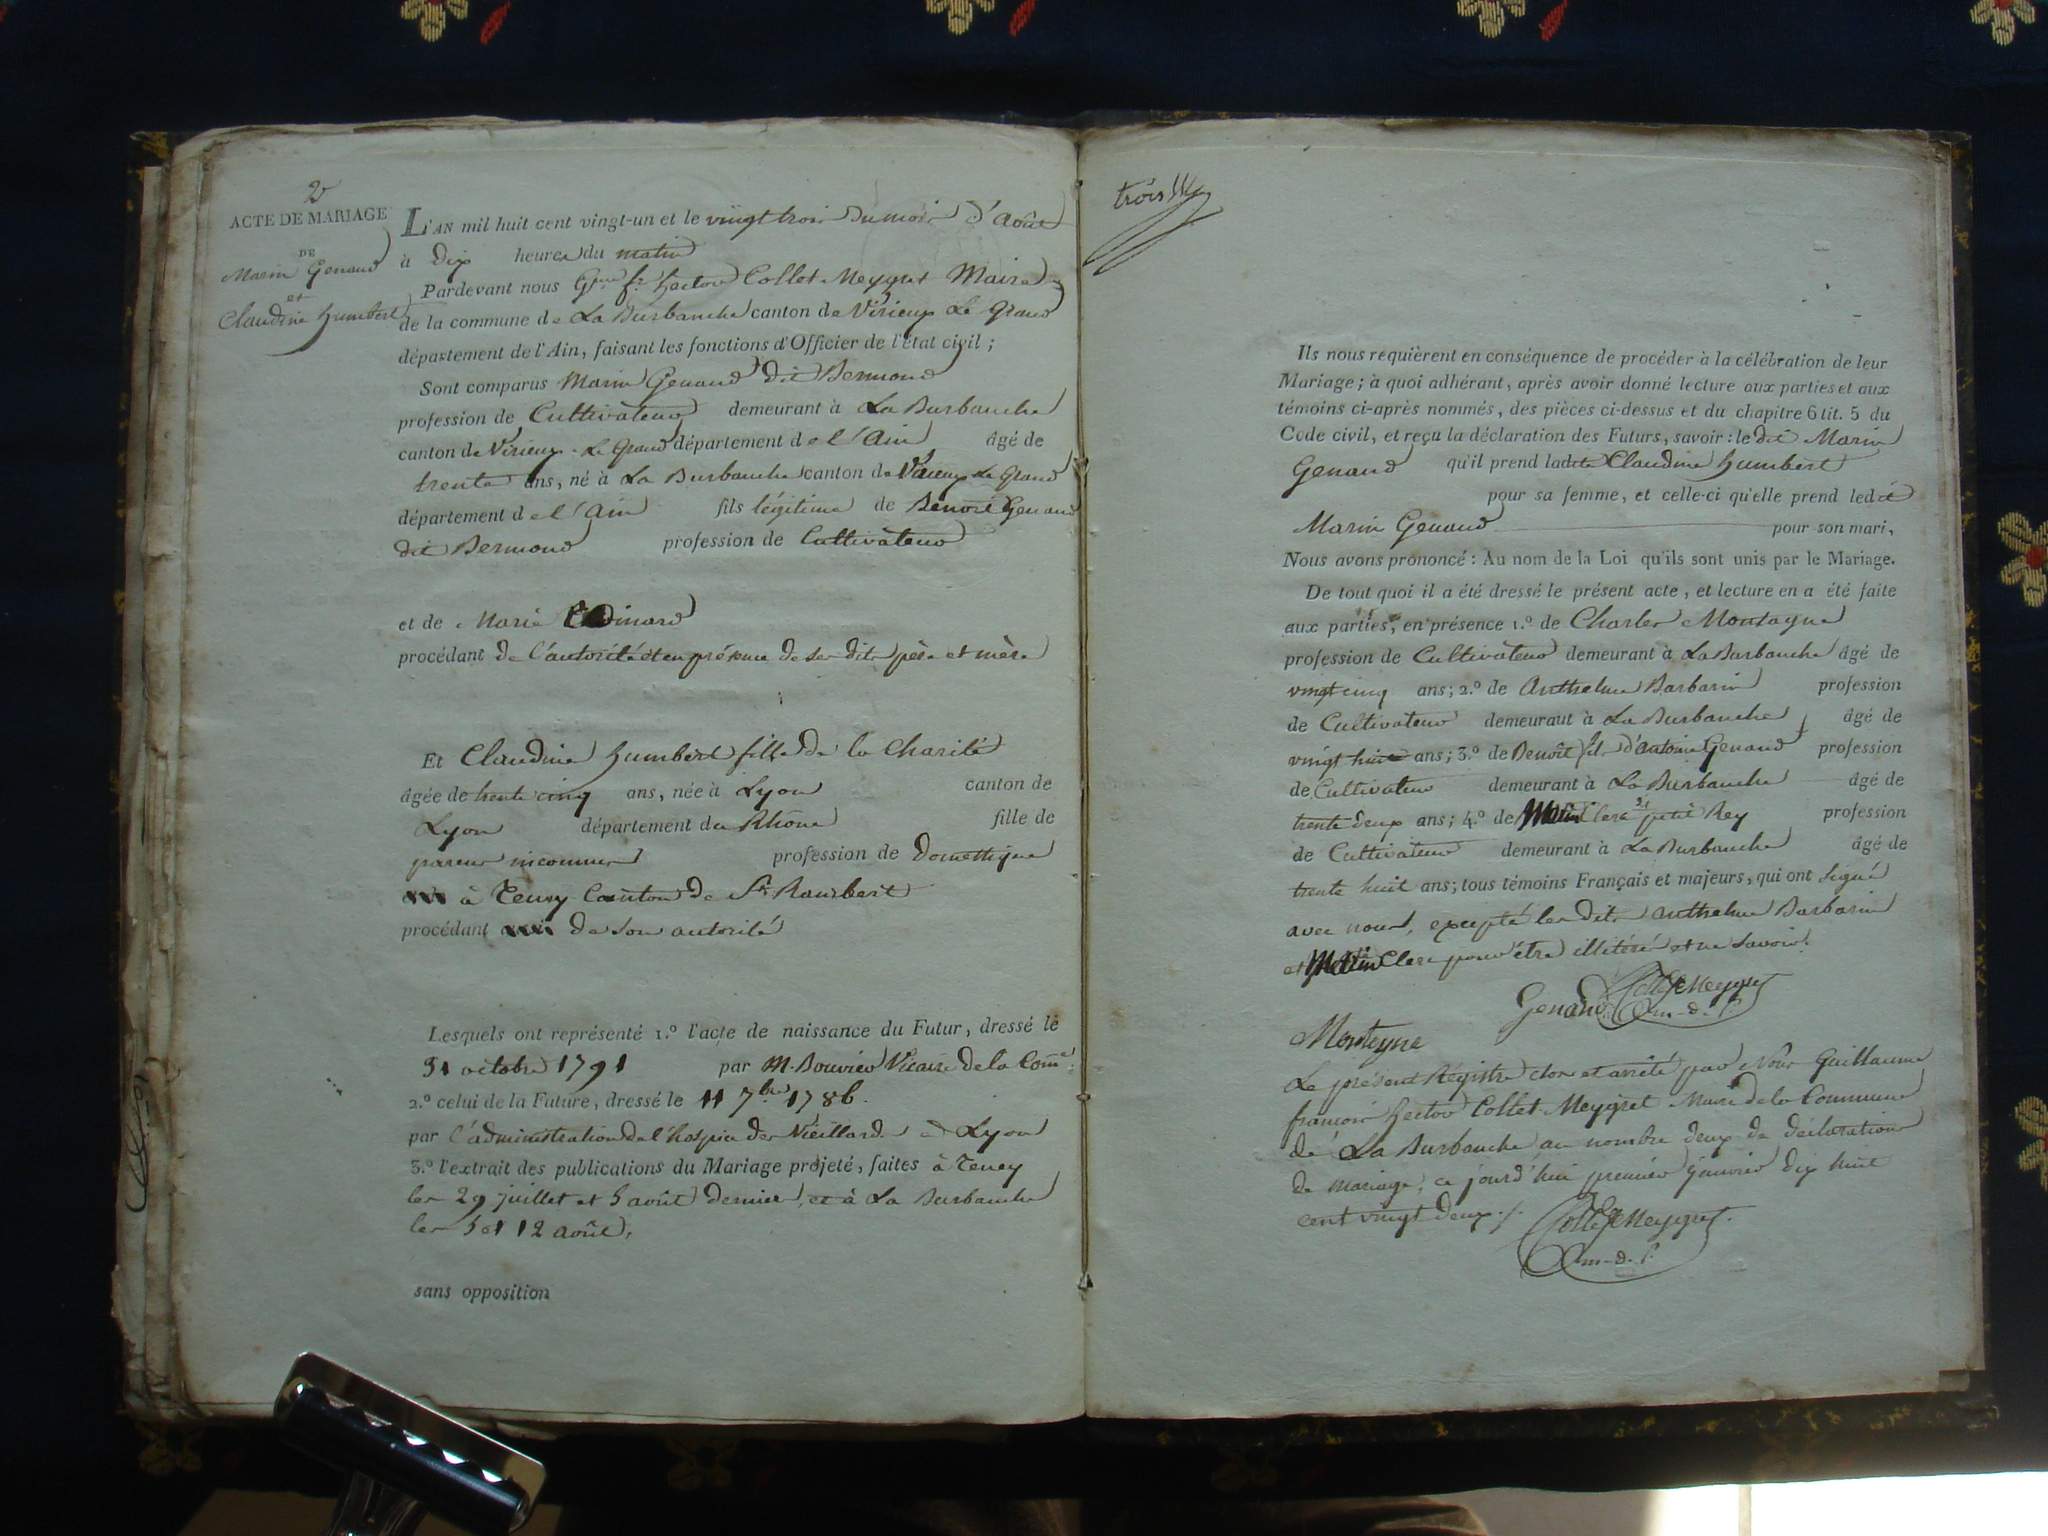 2
ACTE DE MARIAGE
DE
Marin Genaud
et
Claudine humbert
L'AN mil huit cent vingt-un et le vingt trois du mois d'Août
à dix heures du matin
Pardevant nous Gme fs hector Collet-Meygret Maire
de la commune de La Burbanche canton de Virieux Le Grand
département de l'Ain, faisant les fonctions d'Officier de l'état civil ;
Sont comparus Marin Genaud dit Bermond
profession de Cultivateur demeurant à La Burbanche
canton de Virieux-Le Grand département de l'Ain âgé de
trente ans, né à La Burbanche canton de Virieux Le Grand
département de l'Ain fils légitime de Benoit Genaud
dit Bermond profession de Cultivateur
et de Marie
procédant de l'autorité et en présence de ses dits père et mère
Et Claudine humbert fille de la Charité
âgée de trente cinq ans, née à Lyon canton de
Lyon département du Rhône fille de
parens inconnus profession de domestique
à Teney Canton de St Rambert
procédant de son autorité
Lesquels ont représenté 1.º l'acte de naissance du Futur, dressé le
31 octobre 1791 par M. Bouvier Vicaire de la Come
2.º celui de la Future, dressé le 11 7bre 1786.
par l'administration de l'hospice des Vieillards à Lyon
3.º l'extrait des publications du Mariage projeté, faites à Teney
les 29 juillet et 5 août dernier, et à La Burbanche
les 5 et 12 août,
sans opposition
trois
Ils nous requièrent en conséquence de procéder à la célébration de leur
Mariage ; à quoi adhérant, après avoir donné lecture aux parties et aux
témoins ci-après nommés, des pièces ci-dessus et du chapitre 6 tit. 5 du
Code civil, et reçu la déclaration des Futurs, savoir : le dit Marin
Genaud qu'il prend ladite Claudine humbert
pour sa femme, et celle-ci qu'elle prend ledit
Marin Genaud pour son mari,
Nous avons prononcé : Au nom de la Loi qu'ils sont unis par le Mariage.
De tout quoi il a été dressé le présent acte, et lecture en a été faite
aux parties, en présence 1.º de Charles Montagne
profession de Cultivateur demeurant à La Burbanche âgé de
vingt cinq ans ; 2.º de Anthelme Barbarin profession
de Cultivateur demeurant à La Burbanche âgé de
vingt huit ans ; 3.º de Benoît fils d'antoine Genaud profession
de Cultivateur demeurant à La Burbanche âgé de
trente deux ans ; 4.º de Clerc dt petit Rey profession
de Cultivateur demeurant à La Burbanche âgé de
trente huit ans ; tous témoins Français et majeurs, qui ont signé
avec nous, excepté les dits Anthelme Barbarin
et Clerc pour être illitérés et ne savoir.
Genaud Collet Meygret
m-d-l.
Montagne
Le présent Régistre clos et arrêté par Nous Guillaume
françois hector Collet-Meygret Maire de la Commune
de La Burbanche au nombre deux de déclarations
de mariage, ce jourd'hui premier janvier dix huit
cent vingt deux./. Collet Meygret.
m-d-l.